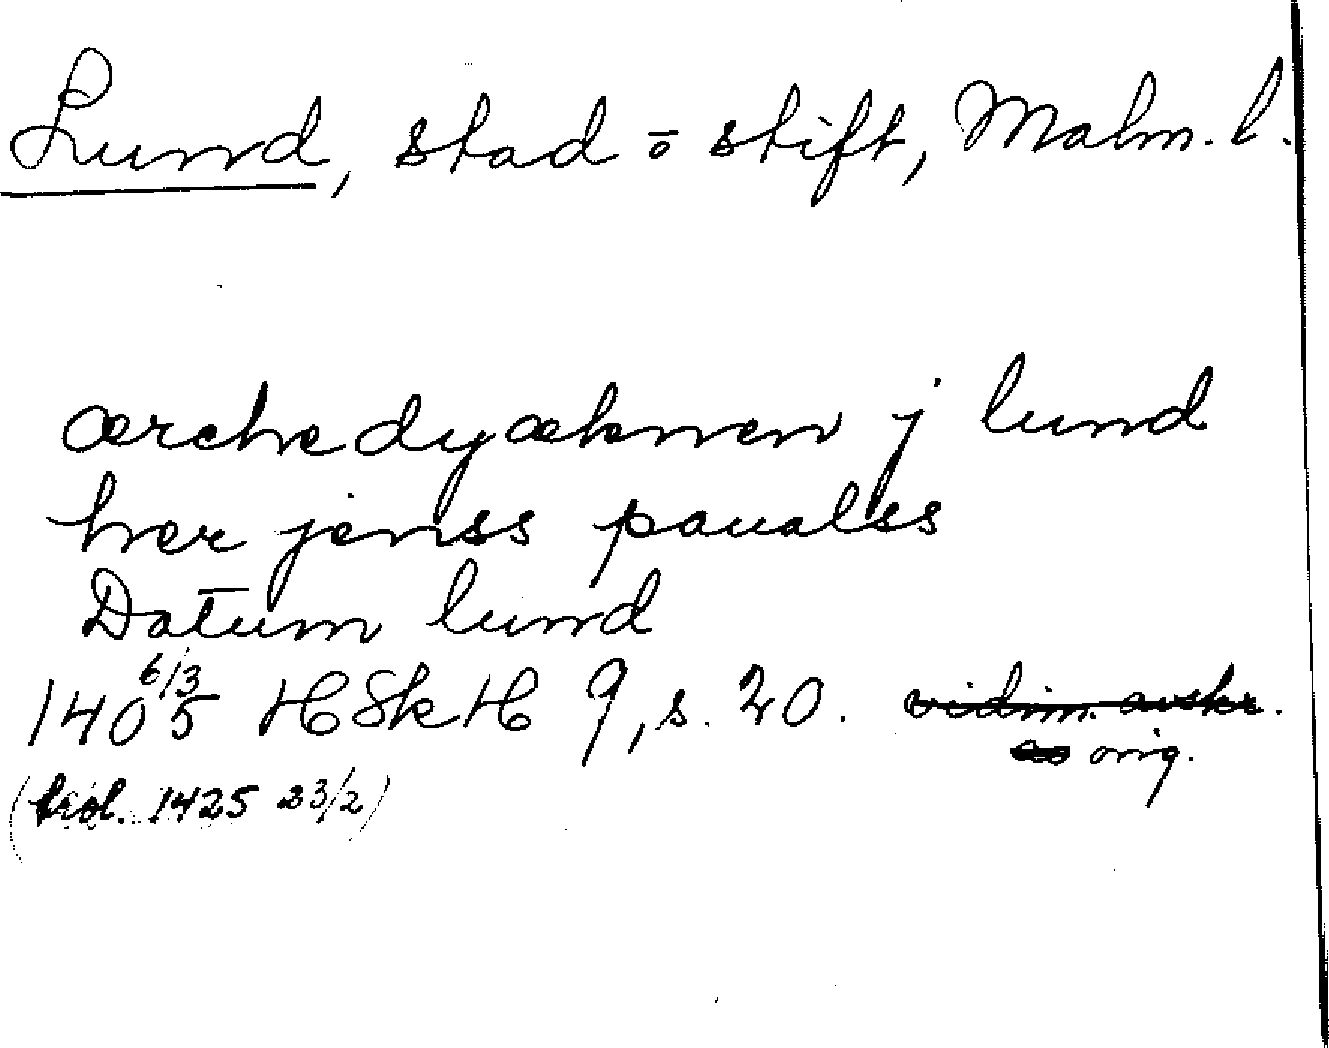 Lund, stad o stift, Malm. l.
ærchedyæknen j lund
her jenss paualss
Datum lund
1405 6/3 HSkH 9, s. 20. vidim. avskr.
orig.
(trol. 1425 23/2)